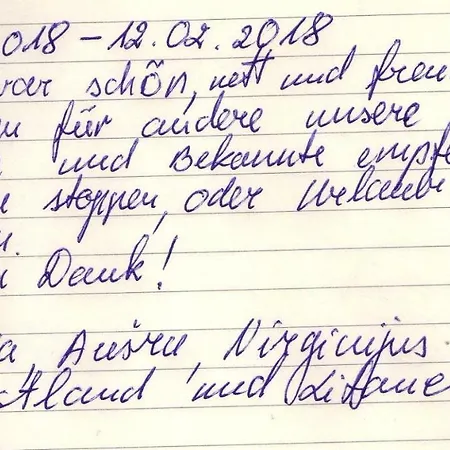 018 - 12.02.2018
war schön, nett und freu
für andere unsere
und Bekannte empfe
stoppen, oder Urlaub
Dank!
Aušra, Virginijus
tland und Litaue